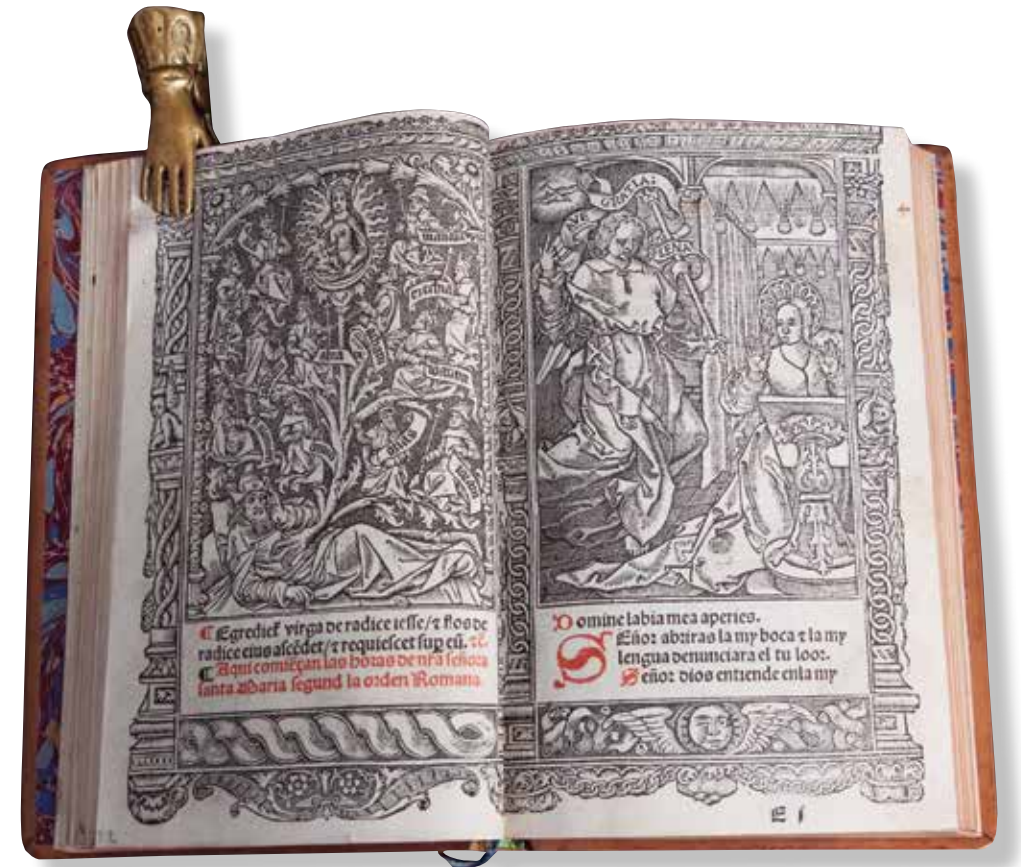 ¶ Egrediet͛ virga de radice iesse/⁊ flos de
radice eius ascēdet/⁊ requiescet sup̱ eū. ⁊č.
¶ Aqui comiēçan las horas de nr̄a señora
santa Maria segund la orden Romana.
AVE
GRATIA:
PLENA
Domine labia mea aperies.
Señor abriras la my boca ⁊ la my
lengua denunciara el tu loor.
Señor dios entiende enla my
E j